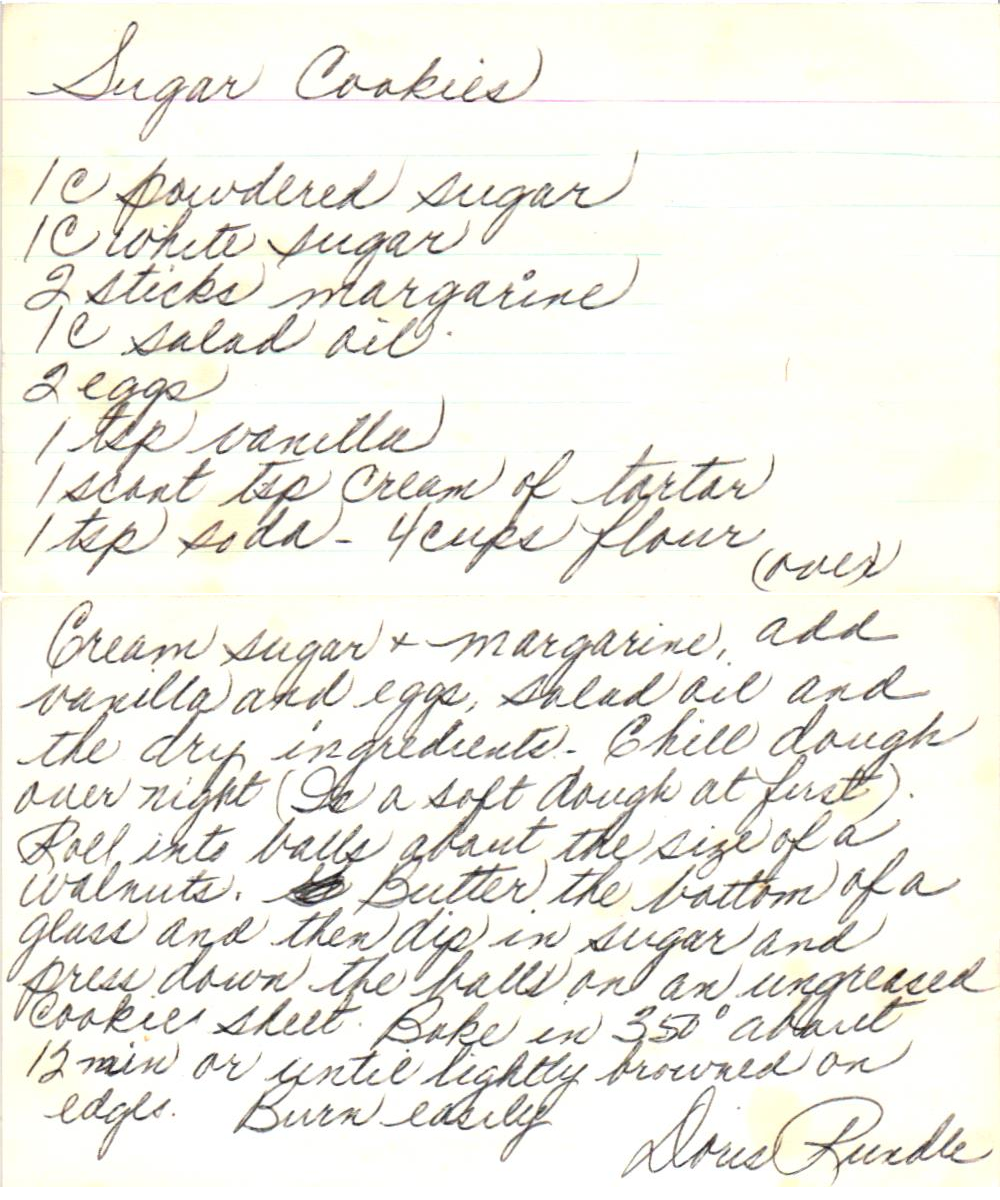 Sugar Cookies
1C powdered sugar
1C white sugar
2 sticks margarine
1C salad oil
2 eggs
1 tsp vanilla
1 scant tsp Cream of tartar
1 tsp soda - 4 cups flour
(over)
Cream sugar + margarine, add
vanilla and eggs, salad oil and
the dry ingredients - Chill dough
over night (Is a soft dough at first).
Roll into balls about the size of a
walnuts. Butter the bottom of a
glass and then dip in sugar and
press down the balls on an ungreased
Cookie sheet. Bake in 350° about
12 min or until lightly browned on
edges. Burn easily
Doris Rundle